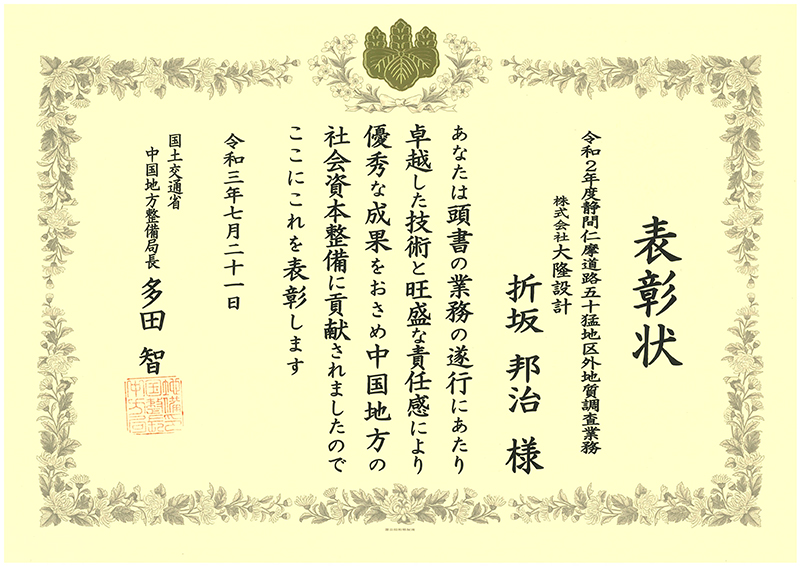 表彰状
令和2年度静間仁摩道路五十猛地区外地質調査業務
株式会社大隆設計
折坂 邦治 様
あなたは頭書の業務の遂行にあたり
卓越した技術と旺盛な責任感により
優秀な成果をおさめ中国地方の
社会資本整備に貢献されましたので
ここにこれを表彰します
令和三年七月二十一日
国土交通省
中国地方整備局長 多田 智